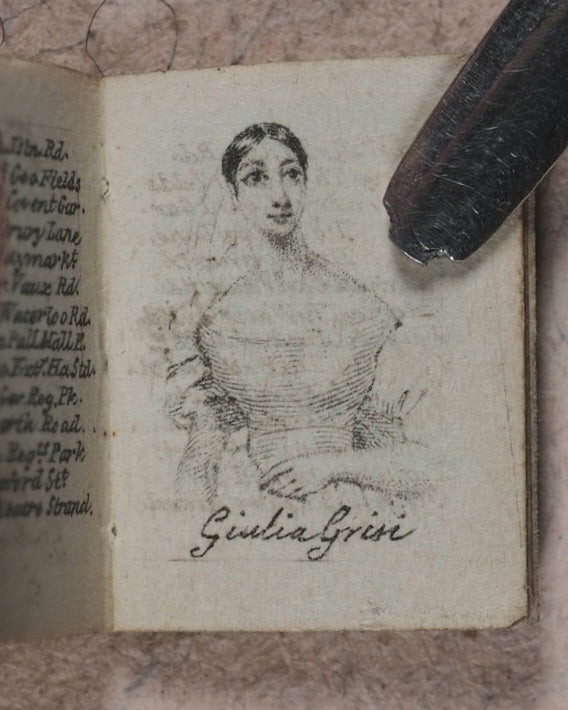 Rd.
Geo Fields
Covent Gar.
rury Lane
aymarkt
Vaux Rd.
Waterloo Rd.
Pall Mall E.
Ha. Std.
Gar Reg. Pk.
orth Road.
Regts Park
xford St.
eatre Strand.
Giulia Grisi